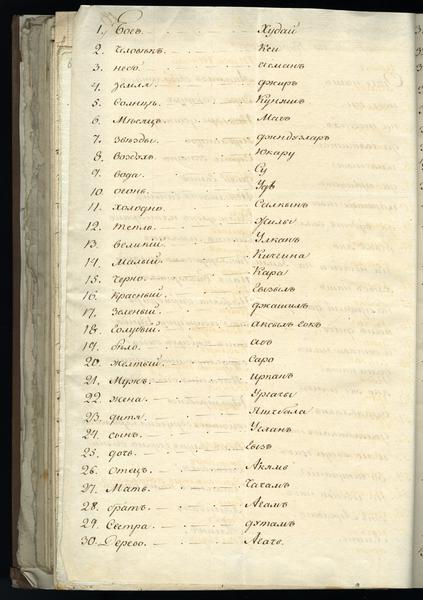 1. Богъ. Худай
2. Человѣкъ. Кси
3. небо. асманъ
4. земля. джиръ
5. Солнце. Куняшъ
6. Мѣсяцъ. Магъ
7. звѣзды. джюндузларъ
8. воздухъ. Юкару
9. вода. Су
10. огонь.
11. холодно. Салкынъ
12. тепло. Жилы
13. великій. Улканъ
14. Малый. Кичгина
15. Черно. Кара
16. Красный. Кызылъ
17. Зеленый. джашилъ
18. голубый.
19. бѣло. акъ
20. желтый. Саро
21. Мужъ. ирланъ
22. жена. Ургачы
23. дитя. Яшъ бала
24. сынъ. Усланъ
25. дочь. Кызъ
26. Отецъ.
27. Мать.
28. братъ. Агамъ
29. Сестра.
30. Дерево. Агачъ.